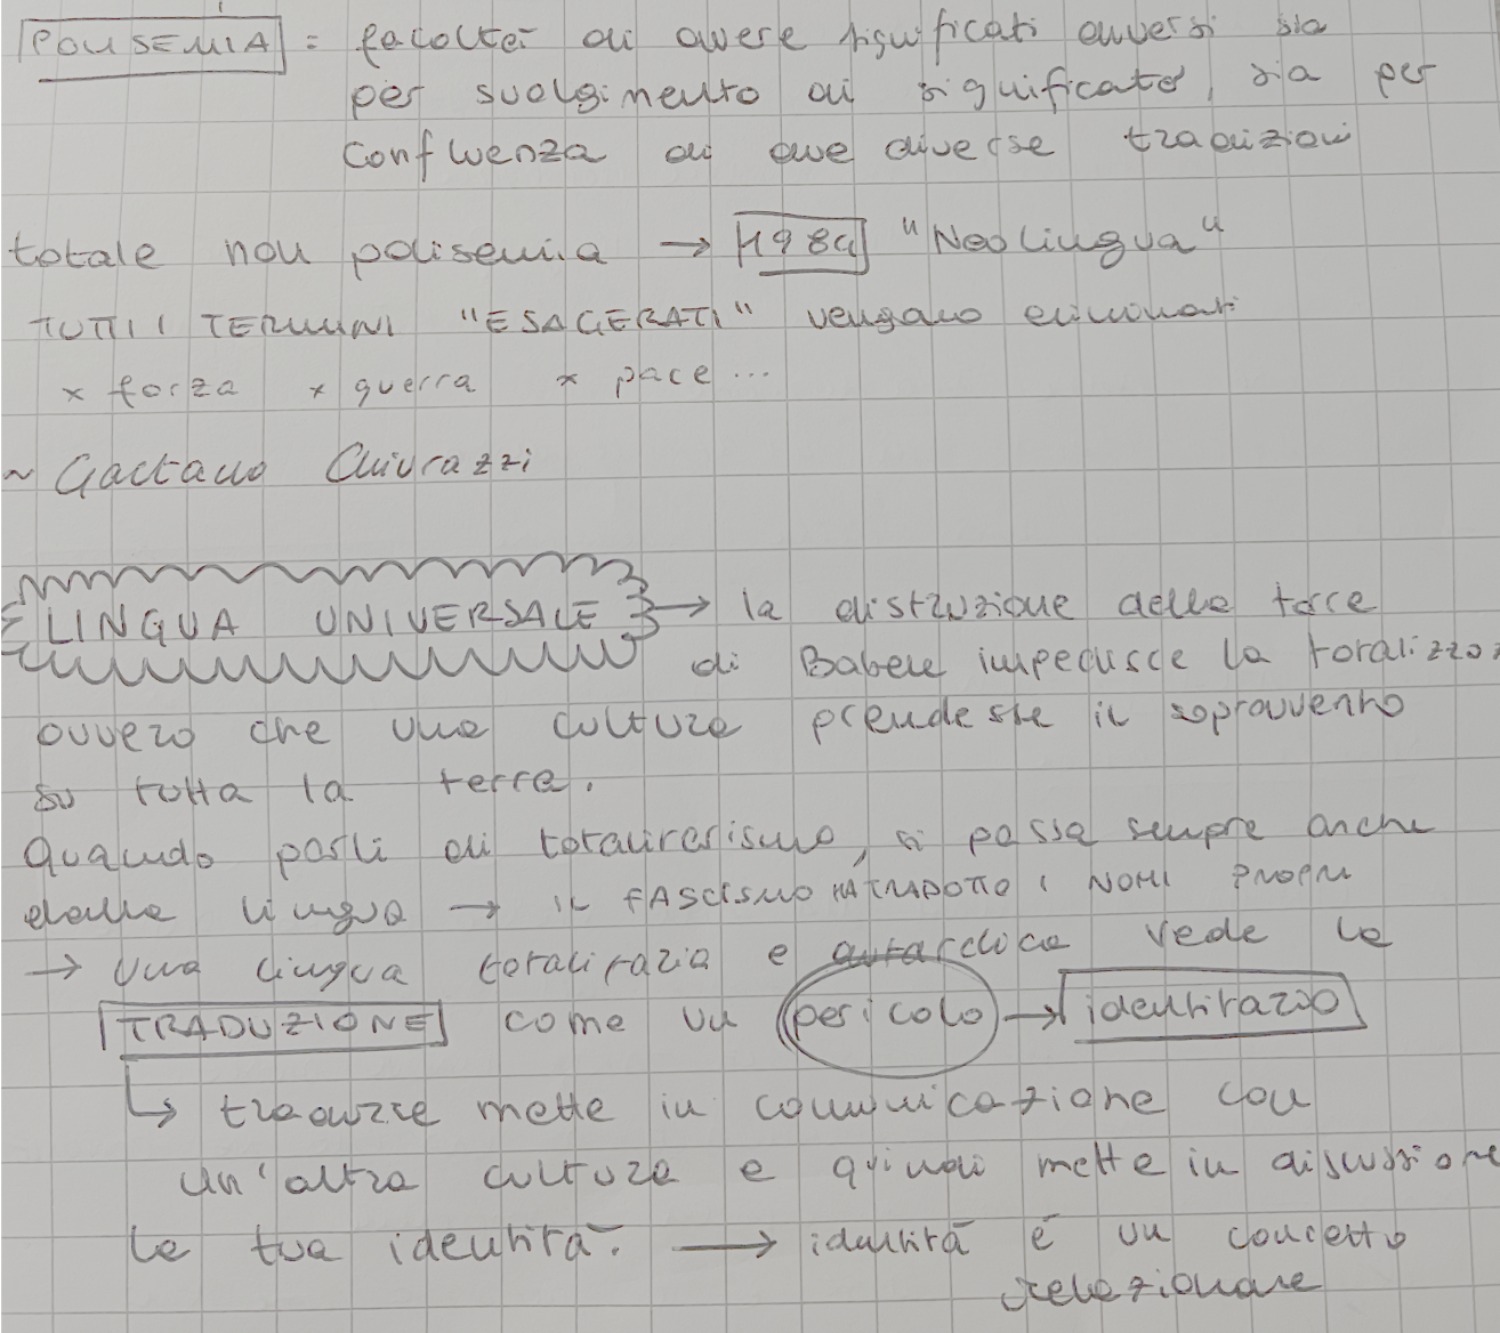 POLISEMIA = facoltà di avere significati diversi sia
per svolgimento di significato, sia per
confluenza di due diverse tradizioni
totale non polisemia → 1984 "Neolingua"
TUTTI I TERMINI "ESAGERATI" vengano eliminati
× forza × guerra × pace ...
~ Gaetano Chiurazzi
LINGUA UNIVERSALE → la distruzione della torre
di Babele impedisce la
ovvero che una cultura prendesse il sopravvento
su tutta la terra.
Quando parli di totalitarismo, si passa sempre anche
dalla lingua → IL FASCISMO HA TRADOTTO I NOMI PROPRI
→ una lingua totalitaria e autarchica vede la
TRADUZIONE come un pericolo → identitario
↳ tradurre mette in comunicazione con
un'altra cultura e quindi mette in discussione
la tua identità. → identità è un concetto
relazionale